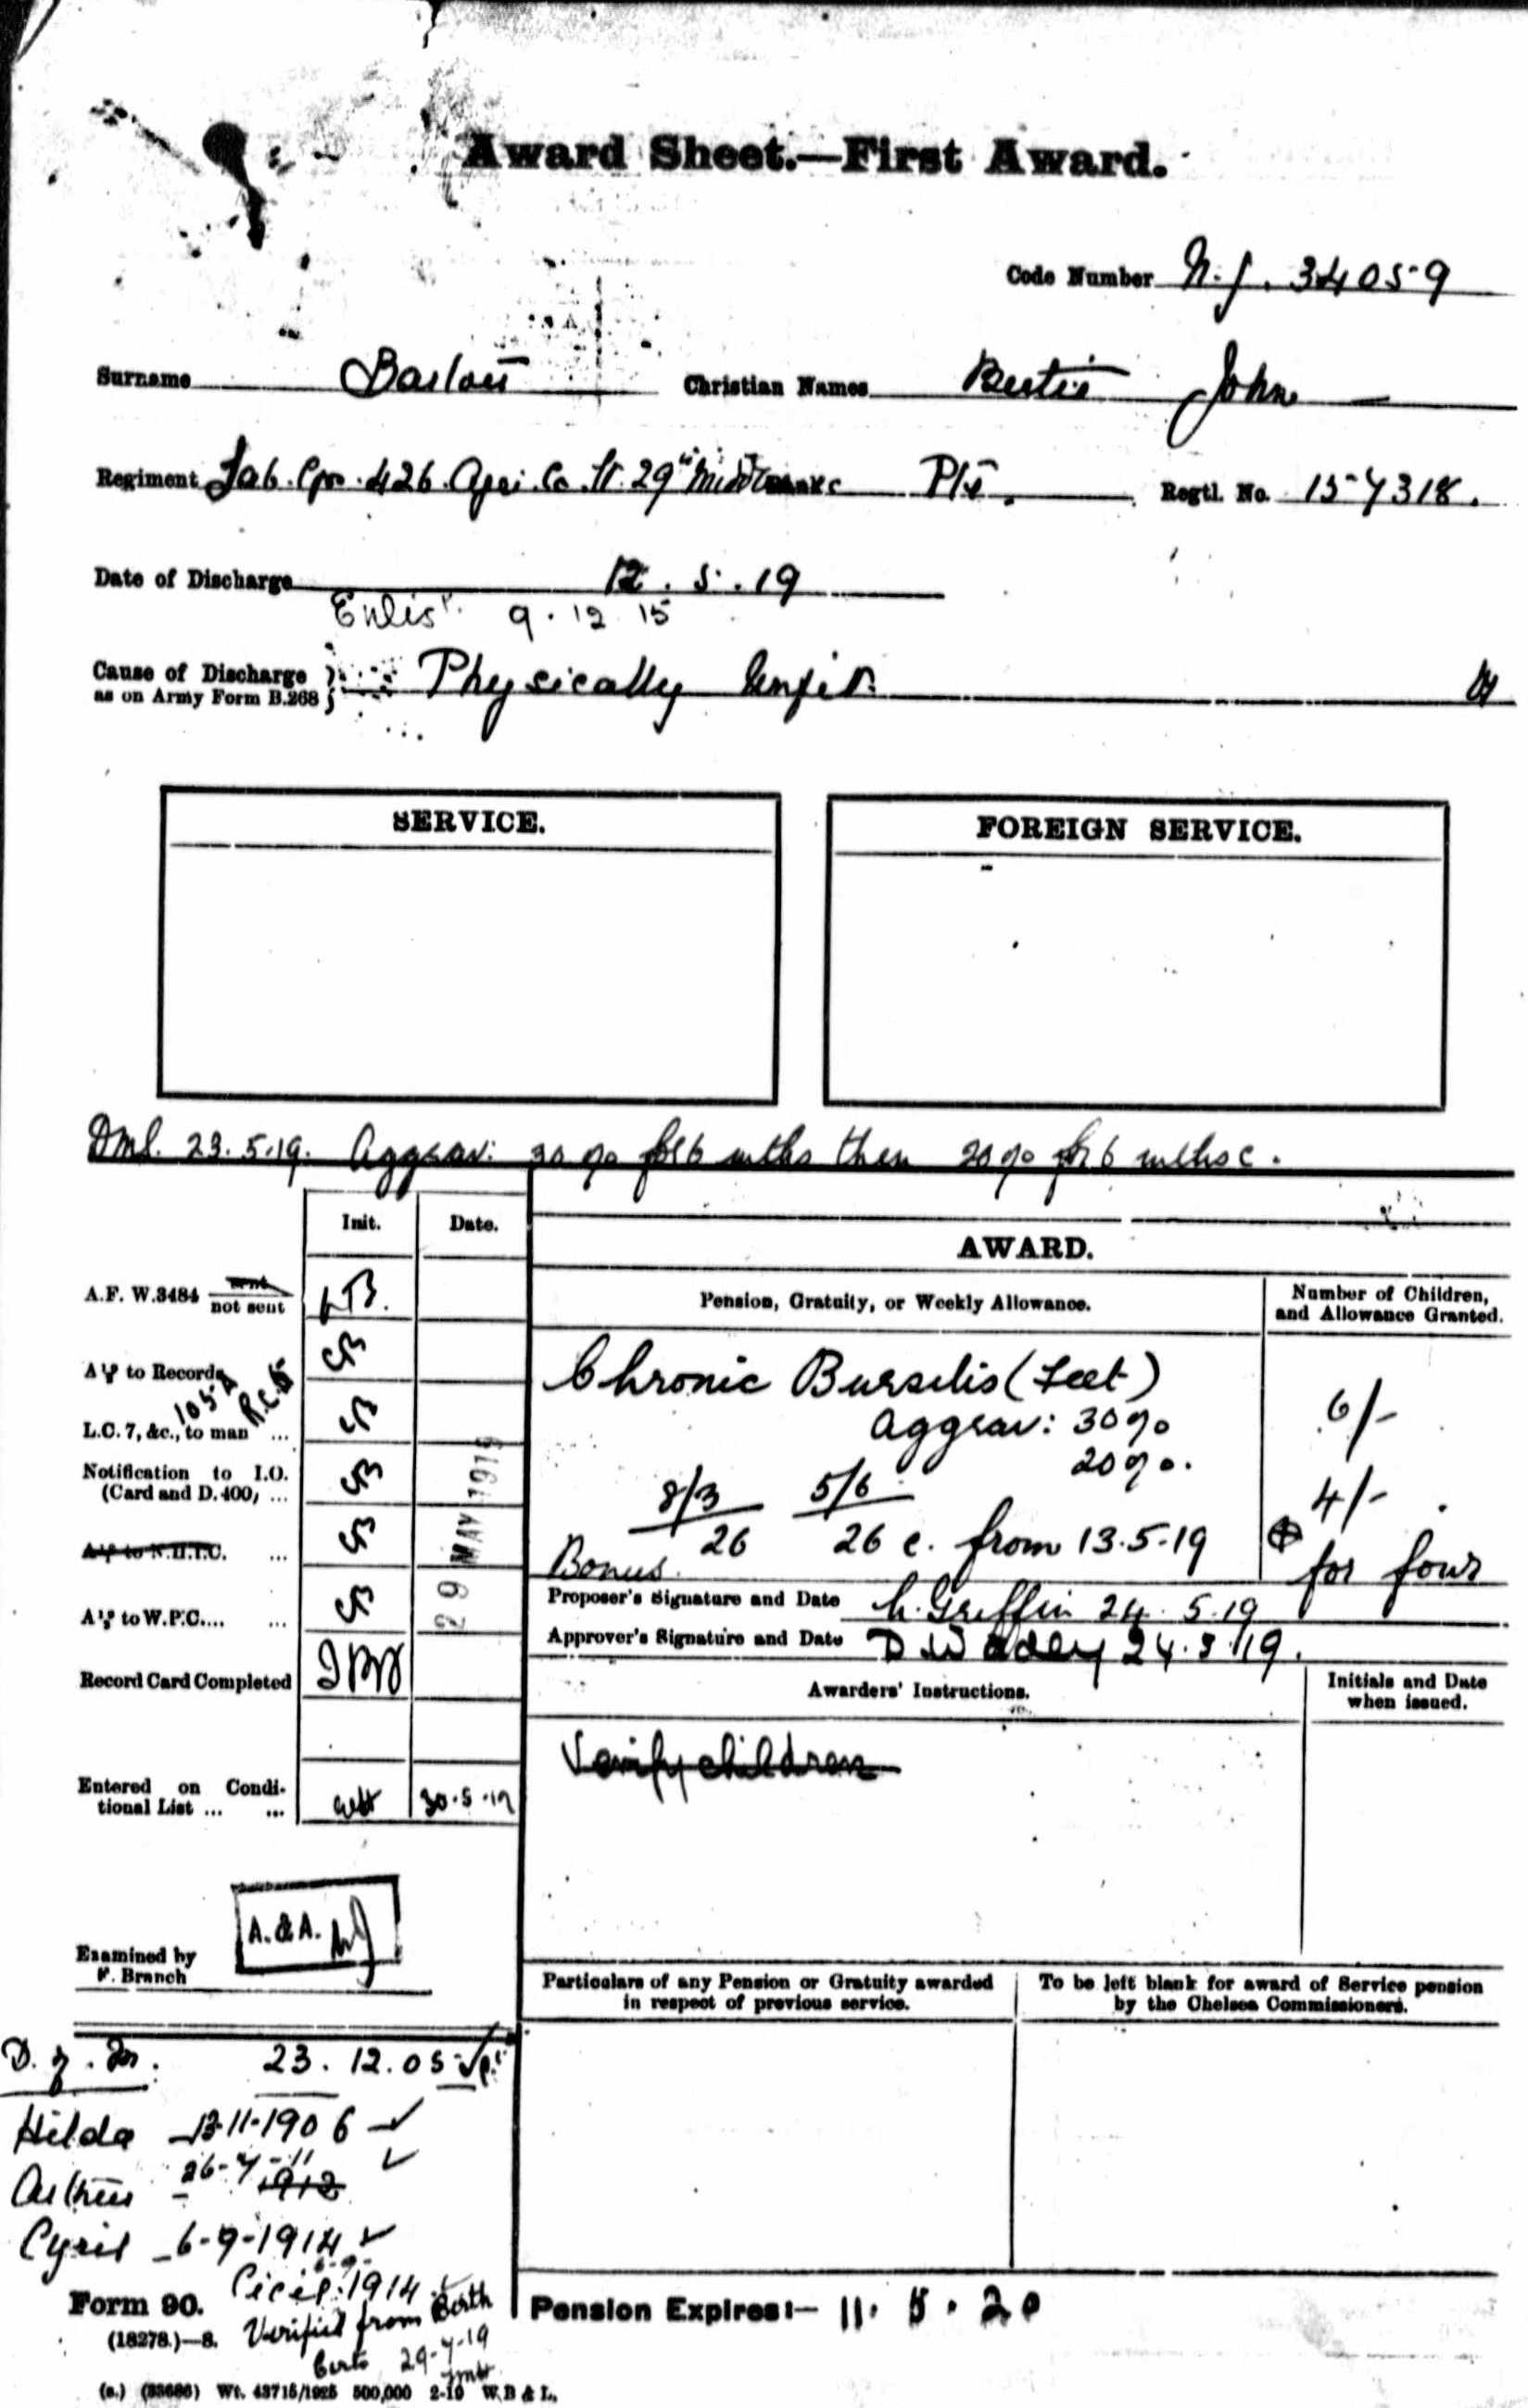 Award Sheet.—First Award.
Code Number N.J. 34059
Surname Christian Names Bertie John
Regiment Lab. Cps. 426. Agri. Co. 29th Middx Pte. Regtl. No. 157318.
Date of Discharge 12.5.19
Enlist. 9.12.15
Cause of Discharge as on Army Form B.268 } Physically Unfit
SERVICE.
FOREIGN SERVICE.
23.5.19. Aggrav: 30% for 6 mths then 20% for 6 mths c.
Init. Date.
AWARD.
A.F. W.3484 sent
not sent
Pension, Gratuity, or Weekly Allowance.
Number of Children, and Allowance Granted.
to Records
Chronic Bursitis (Feet)
Aggrav: 30% 6/-
105A
L.C. 7, &c., to man ...
20%. 4/-
Notification to I.O.
(Card and D.400) ...
8/3 5/6
26 26 c. from 13.5.19
Bonus. for four
29 MAY 1919
to W.P.C.... ...
Proposer's Signature and Date Griffin 24.5.19
Approver's Signature and Date 24.5.19.
Record Card Completed
Awarders' Instructions.
Initials and Date when issued.
Verify children
Entered on Condi-
tional List ... ... 30.5.19
A. & A.
Examined by
F. Branch
Particulars of any Pension or Gratuity awarded
in respect of previous service.
To be left blank for award of Service pension
by the Chelsea Commissioners.
D. of M. 23.12.05
Hilda - 13-11-1906
Arthur - 26-7-11 1912
Cyril - 6-9-1914
Cicil 6-9-1914
Form 90.
Verified from Birth
(18278.)—8.
Certs 29-4-19
Pension Expires:— 11.5.20
(s.) (33686) Wt. 43715/1925 500,000 2-19 W B & L.